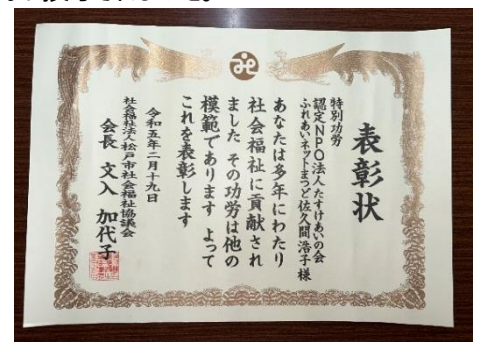 表彰状
特別功労
認定NPO法人たすけあいの会
ふれあいネットまつど佐久間浩子様
あなたは多年にわたり
社会福祉に貢献され
ました その功労は他の
模範であります よって
これを表彰します
令和五年二月十九日
社会福祉法人松戸市社会福祉協議会
会長 文入 加代子